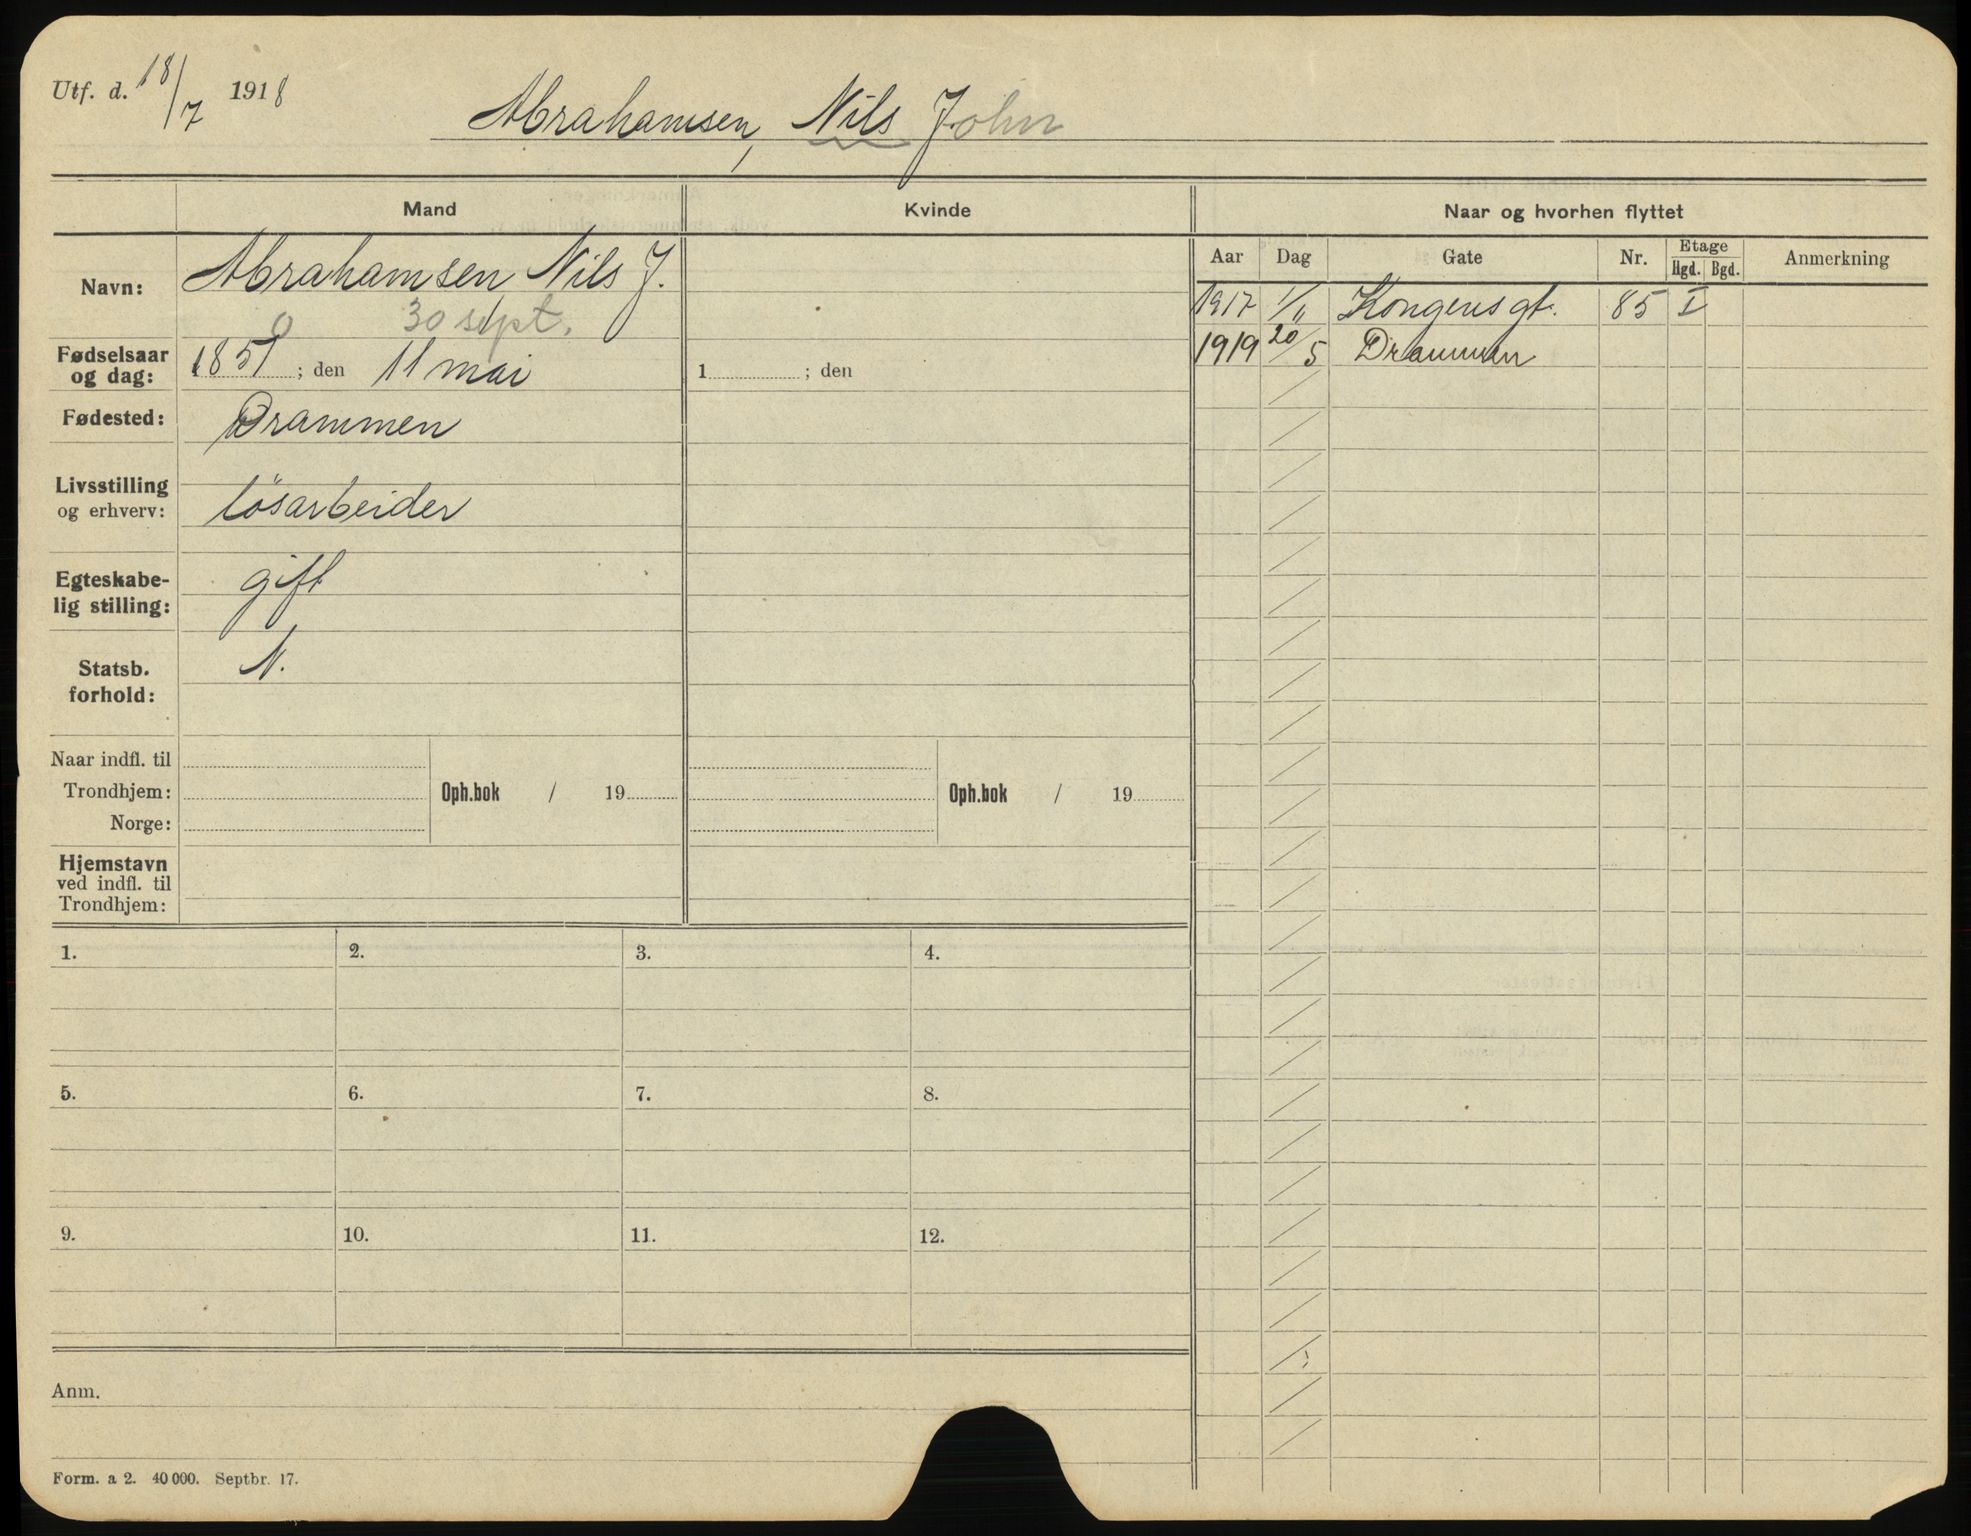 Utf. d. 18/7 1918
Abrahamsen, Nils John
Mand
Kvinde
Naar og hvorhen flyttet
Aar Dag Gate Nr. Etage Hgd. Bgd. Anmerkning
Navn: Abrahamsen Nils J.
0 30 sept.
Fødselsaar og dag: 1851; den 11 mai
1 ; den
Fødested: Drammen
Livsstilling og erhverv: lösarbeider
Egteskabe-
lig stilling: gift
Statsb. forhold: N.
Naar indfl. til
Trondhjem:
Norge:
Oph.bok / 19
Oph.bok / 19
Hjemstavn
ved indfl. til
Trondhjem:
1917 1/11 Kongens gt. 85 I
1919 20/5 Drammen
1. 2. 3. 4.
5. 6. 7. 8.
9. 10. 11. 12.
Anm.
Form. a 2. 40 000. Septbr. 17.